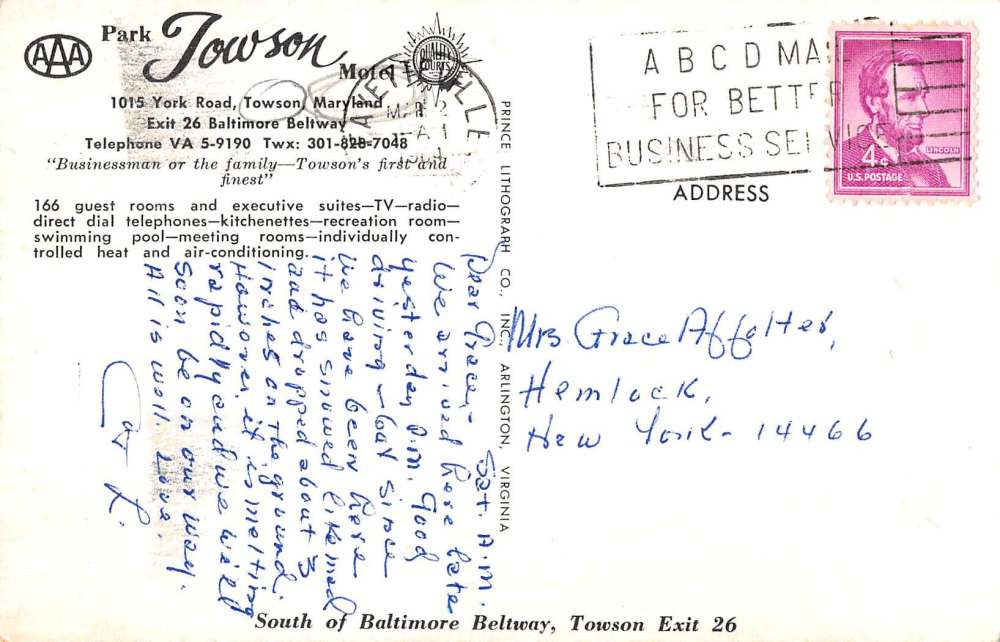 AAA
Park Towson Motel
QUALITY COURTS
1015 York Road, Towson, Maryland
Exit 26 Baltimore Beltway
Telephone VA 5-9190 Twx: 301-828-7048
"Businessman or the family—Towson's first and
finest"
166 guest rooms and executive suites—TV—radio—
direct dial telephones—kitchenettes—recreation room—
swimming pool—meeting rooms—individually con-
trolled heat and air-conditioning.
ETTEVILLE
MAR 2
A B C D MAIL
FOR BETTER
BUSINESS SERVICE
LINCOLN
4¢
U.S. POSTAGE
ADDRESS
PRINCE LITHOGRAPH CO., INC. ARLINGTON, VIRGINIA
Sat. A.M.
Dear Grace,-
We arrived here late
yesterday P.M. Good
driving - but since
we have been here
it has snowed like mad
and dropped about 3
inches on the ground.
However, it is melting
rapidly and we will
soon be on our way.
All is well. Love.
L.
Mrs Grace Affolter,
Hemlock,
New York - 14466
South of Baltimore Beltway, Towson Exit 26